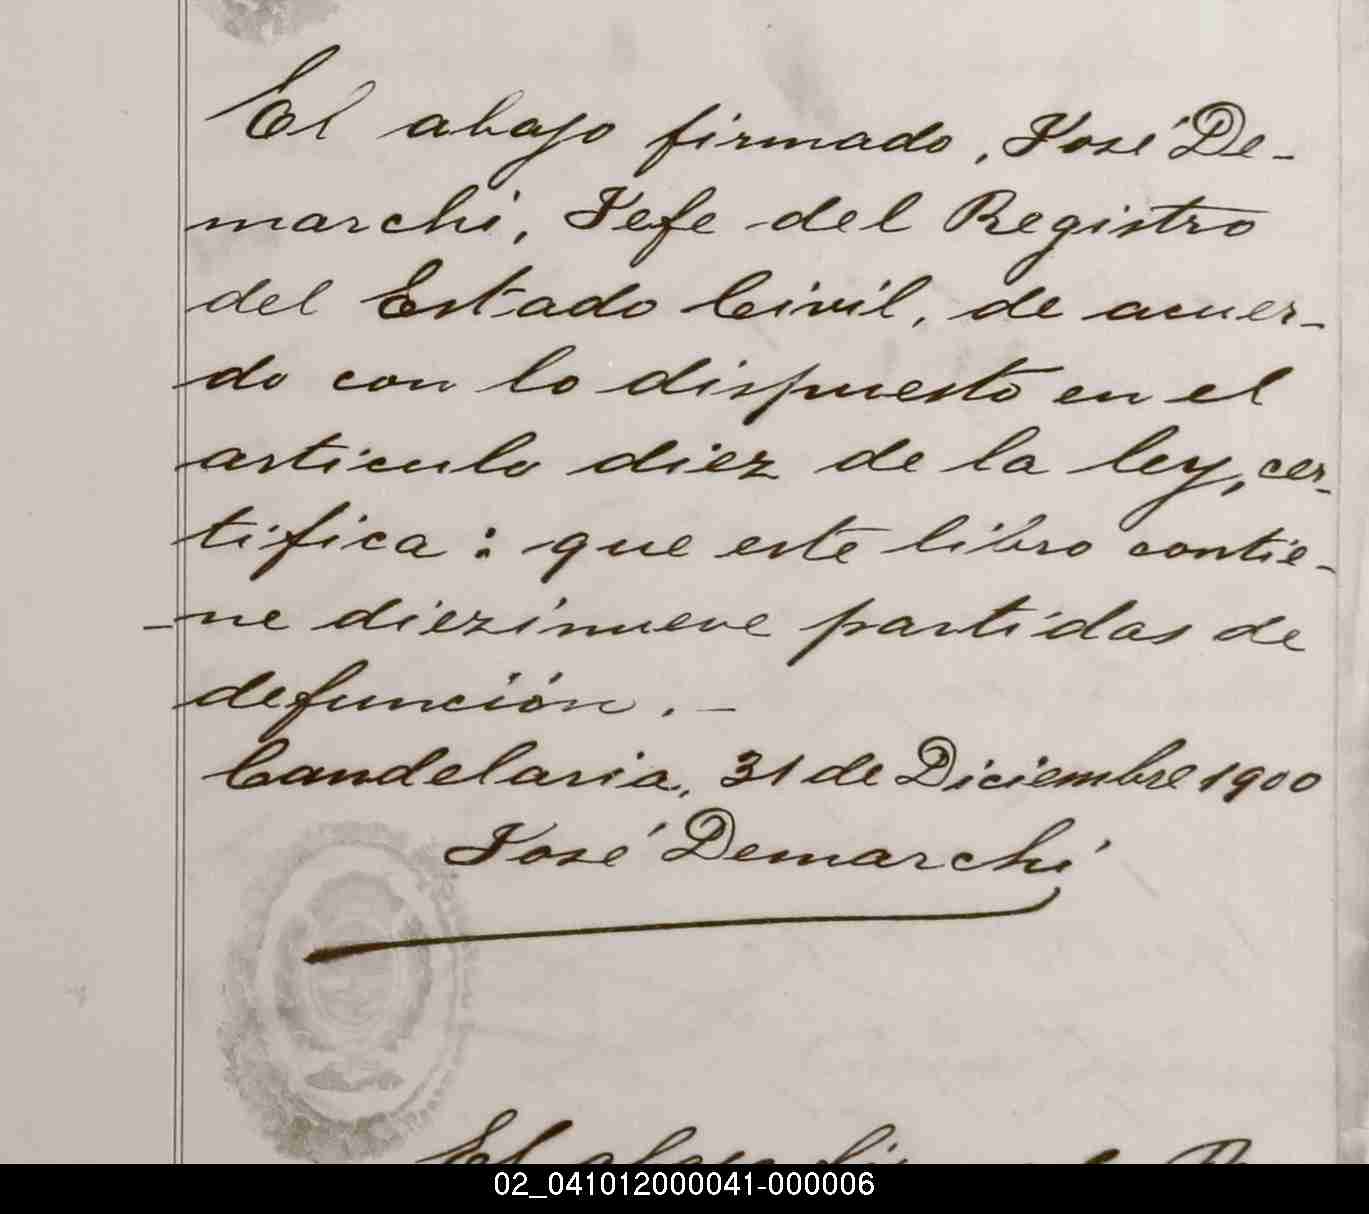 El abajo firmado, José De-
marchi, Jefe del Registro
del Estado Civil, de acuer-
do con lo dispuesto en el
articulo diez de la ley, cer-
tifica: que este libro contie-
-ne diezinueve partidas de
defunción.-
Candelaria, 31 de Diciembre 1900
José Demarchi
El abajo
02_041012000041-000006